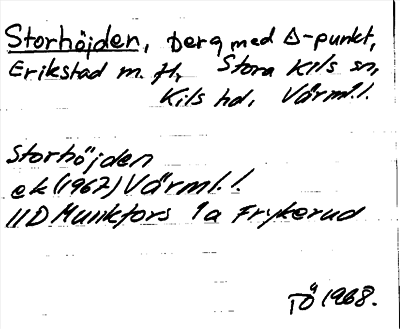 Storhöjden, berg med Δ-punkt,
Erikstad m. fl., Stora Kils sn,
Kils hd, Värml.l.
Storhöjden
ek (1967) Värml.l.
11D Munkfors 1a Frykerud
TÖ 1968.